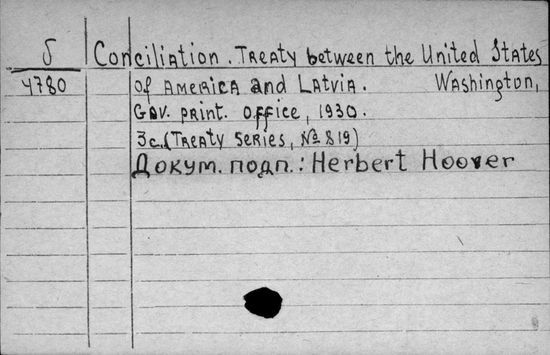 5 Conciliation. Treaty between the United States
4780 of America and Latvia. Washington,
Gov. print. office, 1930.
3c. (Treaty series, № 819)
Докум. подп.: Herbert Hoover